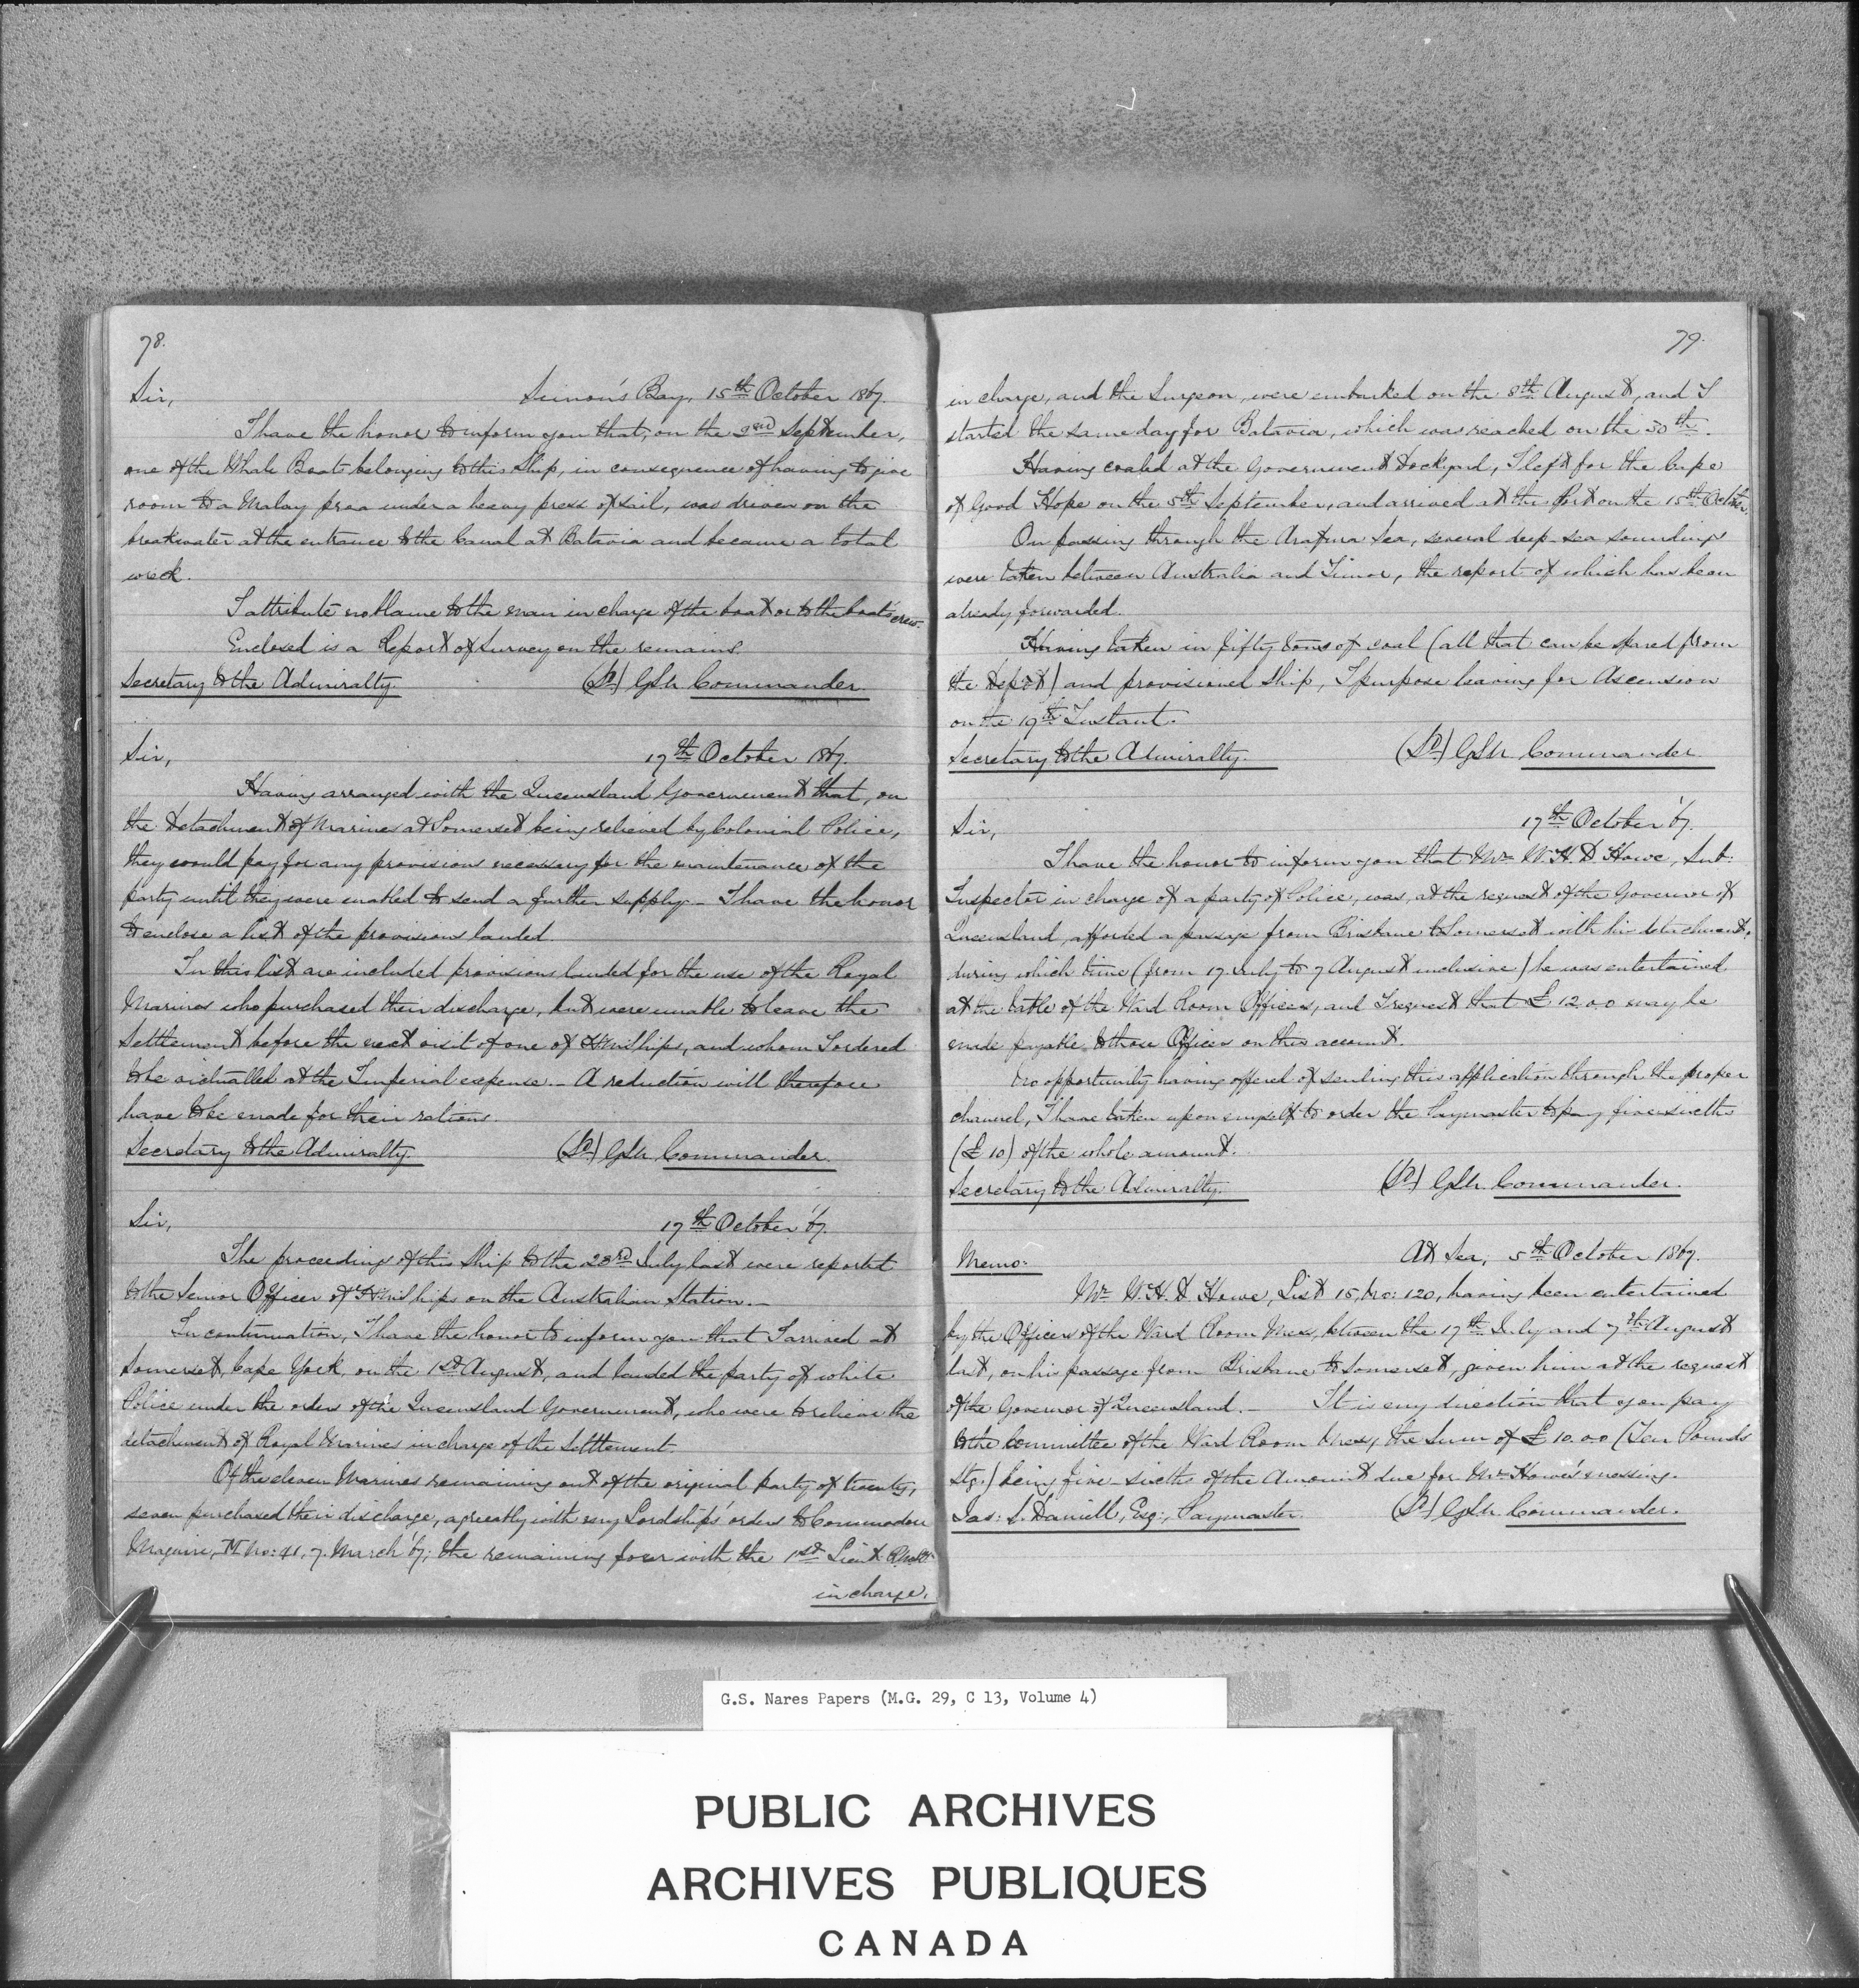 78.
Sir,
Simon's Bay, 15th October 1867.
I have the honor to inform you that, on the 3rd September,
one of the Whale Boats belonging to this Ship, in consequence of having to give
room to a Malay proa under a heavy press of sail, was driven on the
breakwater at the entrance to the Canal at Batavia and became a total
wreck.
I attribute no blame to the man in charge of the boat or to the boat's crew.
Enclosed is a Report of Survey on the remains.
Secretary to the Admiralty. (Sd) GSN Commander.
Sir,
17th October 1867.
Having arranged with the Queensland Government that, on
the detachment of Marines at Somerset being relieved by Colonial Police,
they would pay for any provisions necessary for the maintenance of the
party until they were enabled to send a further supply – I have the honor
to enclose a list of the provisions landed.
In this list are included provisions landed for the use of the Royal
Marines who purchased their discharge, but were unable to leave the
Settlement before the next visit of one of HM Ships, and whom I ordered
to be victualled at the Imperial expense. – A reduction will therefore
have to be made for their rations.
Secretary to the Admiralty. (Sd) GSN Commander.
Sir,
17th October '67.
The proceedings of this Ship to the 23rd July last were reported
to the Senior Officer of HM Ships on the Australian Station. –
In continuation, I have the honor to inform you that I arrived at
Somerset, Cape York, on the 1st August, and landed the party of white
Police under the orders of the Queensland Government, who were to relieve the
detachment of Royal Marines in charge of the Settlement
Of the eleven Marines remaining out of the original party of twenty,
seven purchased their discharge, agreeably with my Lordships' orders to Commodore
Maguire, M No: 41, 7 March '67; the remaining four with the 1st Lieut
in charge,
79.
in charge, and the Surgeon, were embarked on the 8th August, and I
started the same day for Batavia, which was reached on the 30th.
Having coaled at the Government Dockyard, I left for the Cape
of Good Hope on the 5th September, and arrived at the Port on the 15th October.
On passing through the Arafura Sea, several deep-sea soundings
were taken between Australia and Timor, the report of which has been
already forwarded.
Having taken in fifty tons of coal (all that can be spared from
the depôt) and provisioned Ship, I purpose leaving for Ascension
on the 19th Instant.
Secretary to the Admiralty. (Sd) GSN Commander.
17th October '67.
Sir,
I have the honor to inform you that Mr W. H. D Howe, Sub:
Inspector in charge of a party of Police, was, at the request of the Governor of
Queensland, afforded a passage from Brisbane to Somerset with his detachment,
during which time (from 17 July to 7 August inclusive) he was entertained
at the table of the Ward Room Officers, and I request that £12.0.0 may be
made payable to those Officers on this account.
No opportunity having offered of sending this application through the proper
channel, I have taken upon myself to order the Paymaster to pay five sixths
(£10) of the whole amount.
Secretary to the Admiralty. (Sd) GSN Commander.
Memo:
At Sea, 5th October 1867.
Mr W. H. D Howe, List 15, No: 120, having been entertained
by the Officers of the Ward Room Mess, between the 17th July and 7th August
last, on his passage from Brisbane to Somerset, given him at the request
of the Governor of Queensland. – It is my direction that you pay
to the Committee of the Ward Room Mess, the Sum of £10.0.0 (Ten Pounds
Stg.) being five-sixths of the Amount due for Mr Howe's messing.
Jas: L. Daniell, Esq:, Paymaster. (Sd) GSN Commander.
G.S. Nares Papers (M.G. 29, C 13, Volume 4)
PUBLIC ARCHIVES
ARCHIVES PUBLIQUES
CANADA